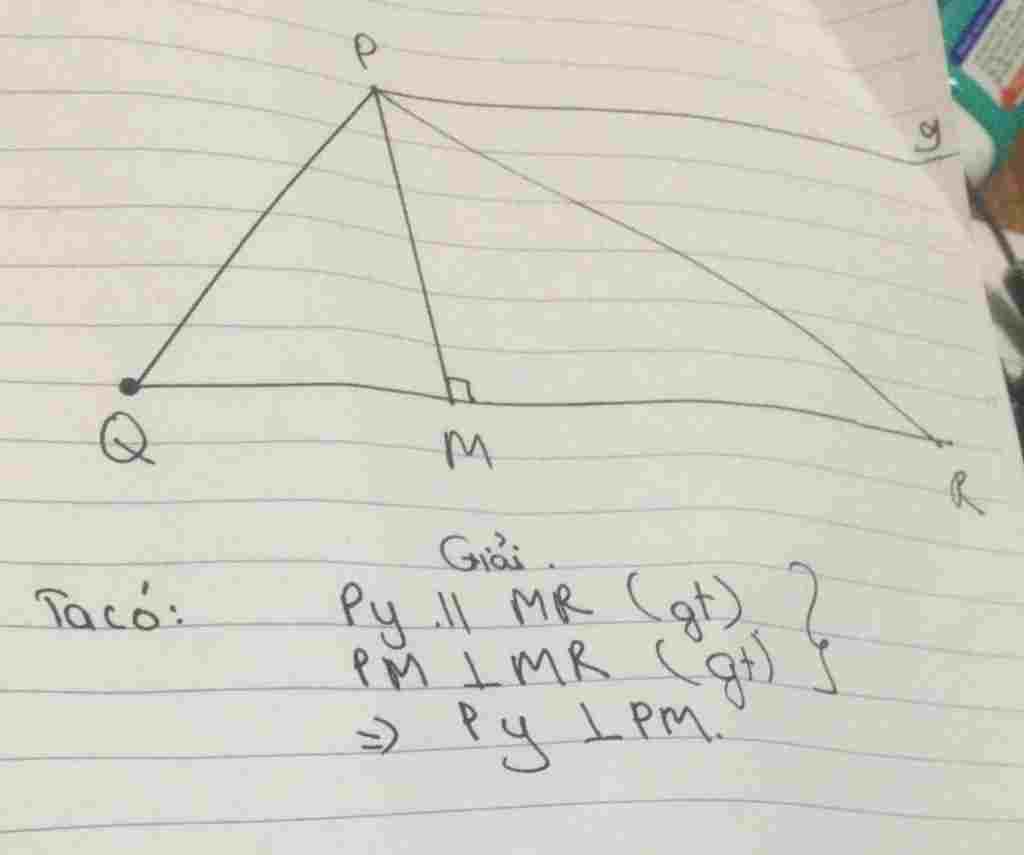 P
y
Q
M
R
Giải.
Ta có: Py // MR (gt)
PM ⊥ MR (gt)
=> Py ⊥ PM.